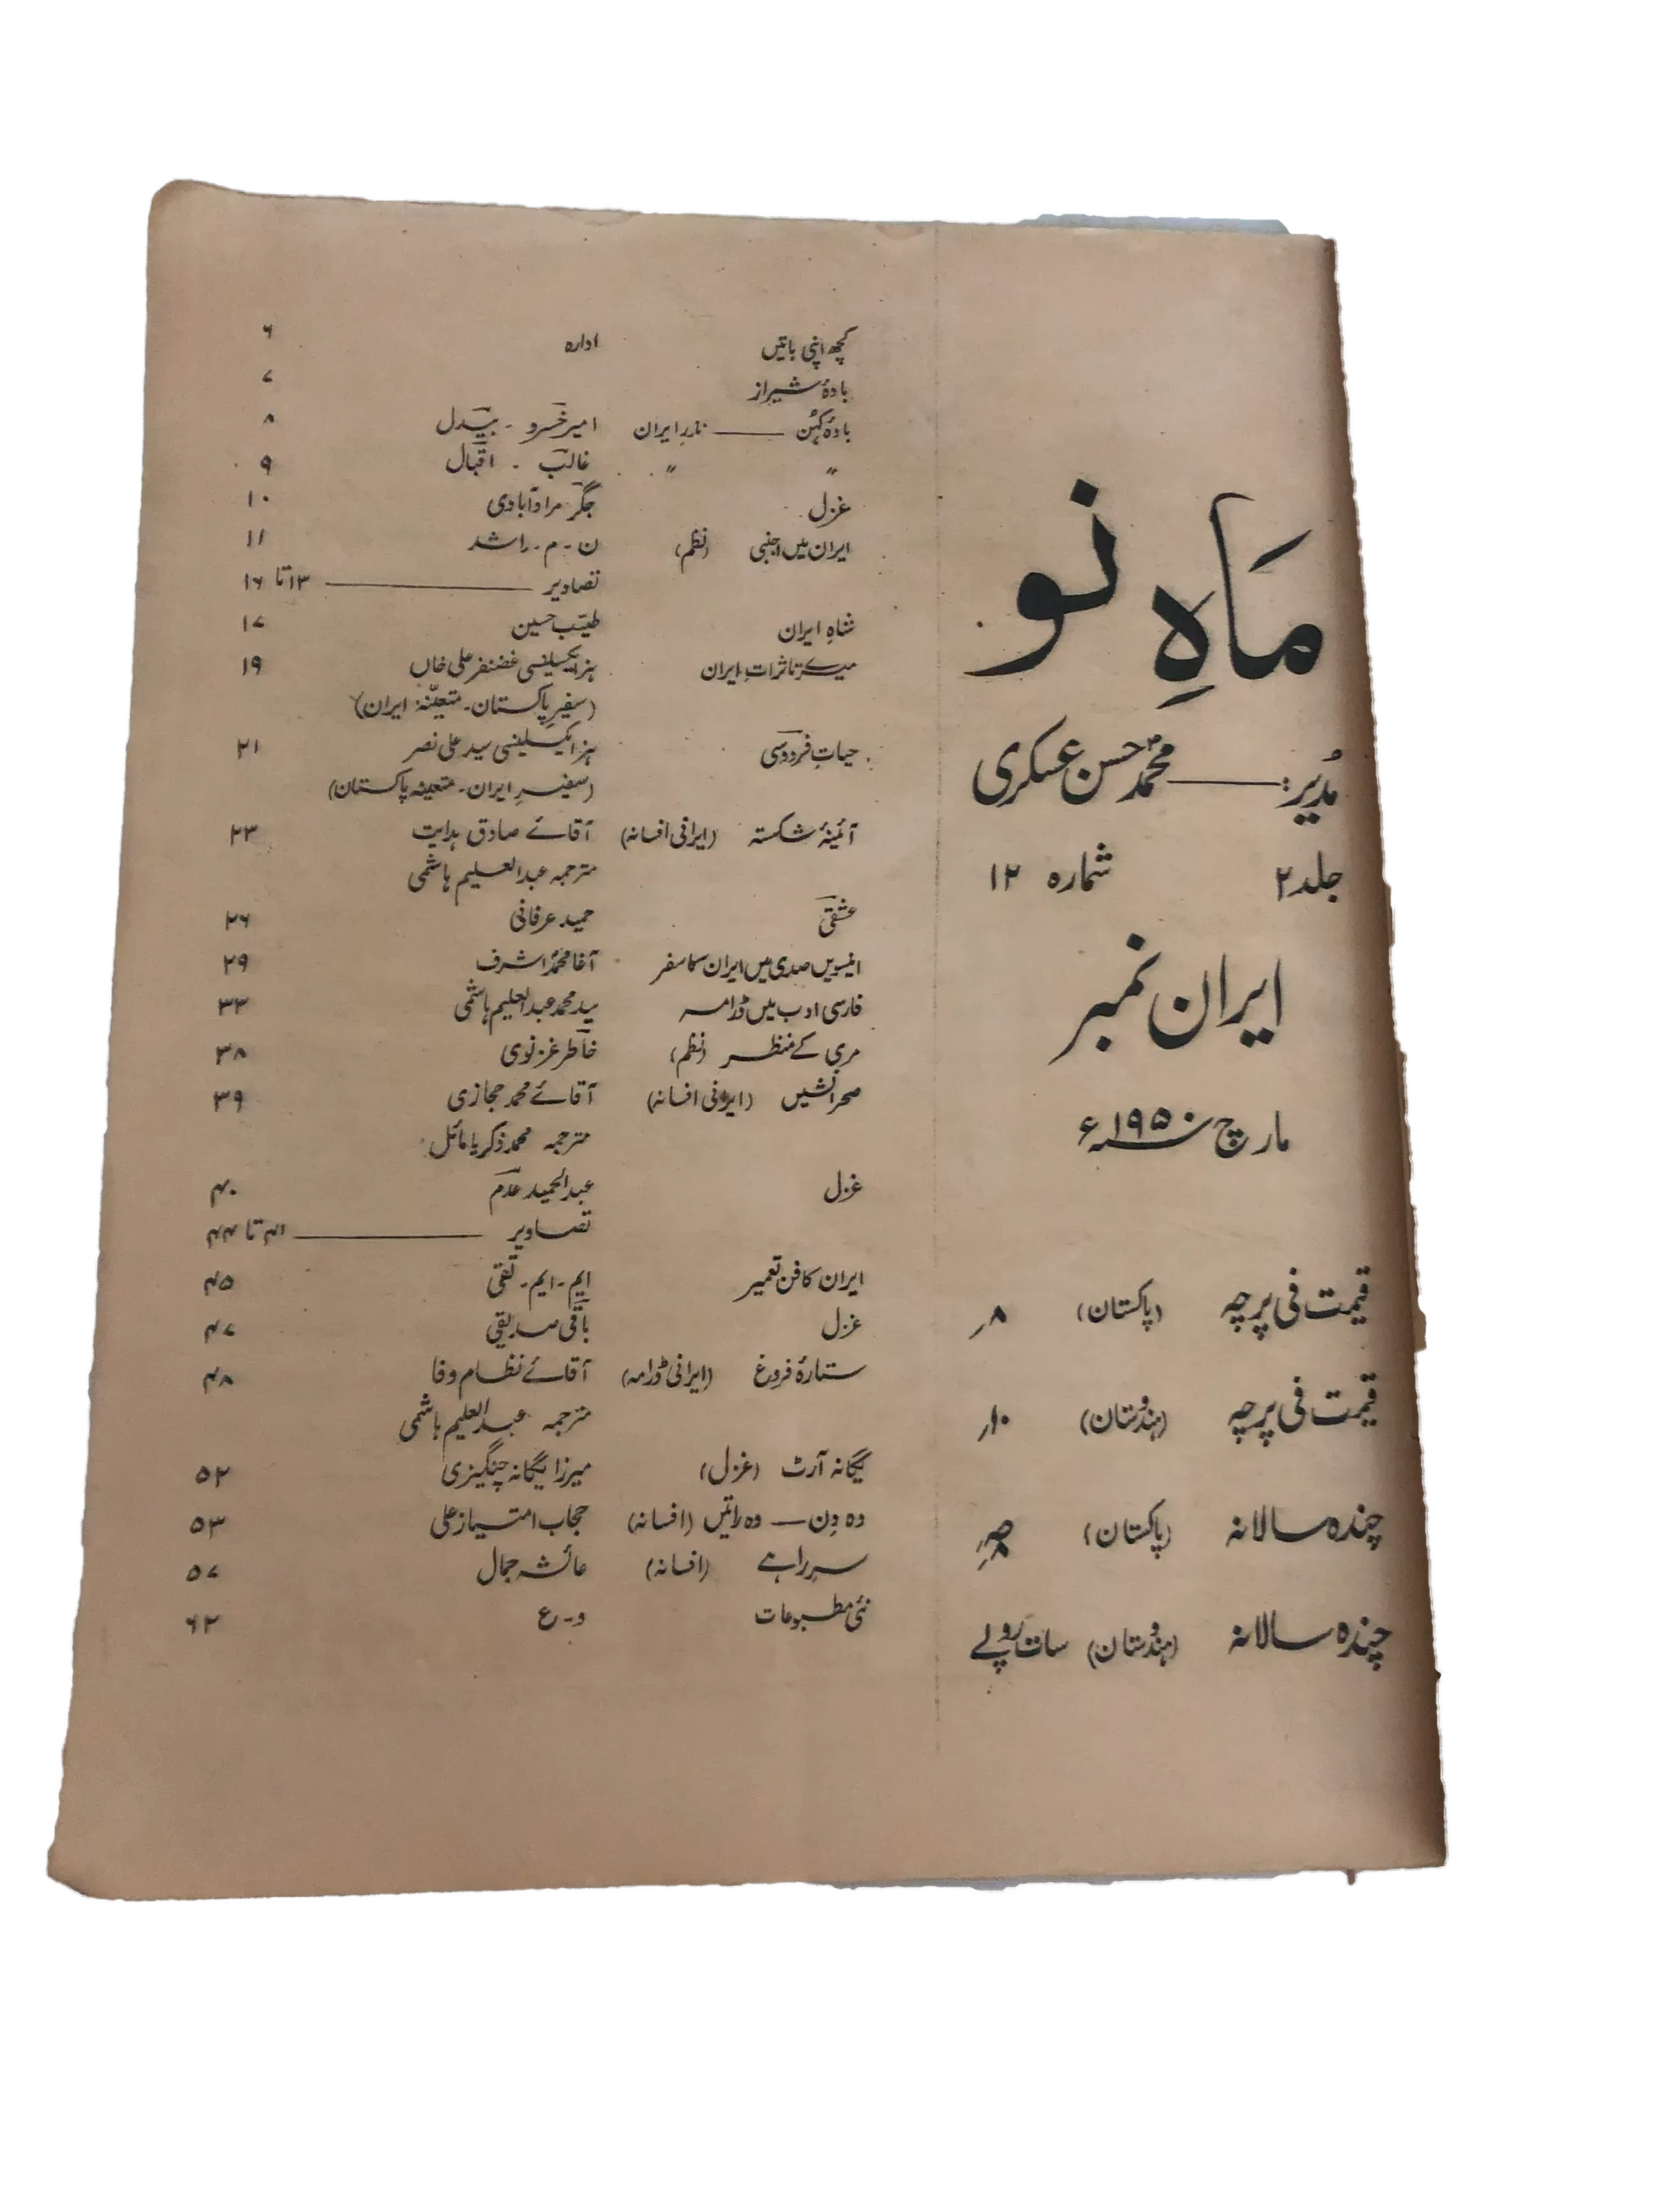 ماہِ نو
مُدیر: محمد حسن عسکری
جلد ۲ شمارہ ۱۲
ایران نمبر
مارچ ۱۹۵۰ء
قیمت فی پرچہ (پاکستان) ۸؍
قیمت فی پرچہ (ہندوستان) ۱۰؍
چندہ سالانہ (پاکستان)
چندہ سالانہ (ہندوستان) سات روپے
کچھ اپنی باتیں ادارہ ۶
بادۂ شیراز ۷
بادۂ کہن — نذرِ ایران امیر خسرو - بیدل ۸
" " غالب - اقبال ۹
غزل جگر مرادآبادی ۱۰
ایران میں اجنبی (نظم) ن - م - راشد ۱۱
تصاویر — ۱۳ تا ۱۶
شاہِ ایران طیّب حسین ۱۷
میرے تاثراتِ ایران ہز ایکسیلنسی غضنفر علی خاں ۱۹
(سفیرِ پاکستان - متعیّنہ ایران)
حیاتِ فردوسی ہز ایکسیلنسی سید علی نصر ۲۱
(سفیرِ ایران - متعینہ پاکستان)
آئینۂ شکستہ (ایرانی افسانہ) آقائے صادق ہدایت ۲۳
مترجمہ عبدالعلیم ہاشمی
عشقی حمید عرفانی ۲۶
انیسویں صدی میں ایران کا سفر آغا محمد اشرف ۲۹
فارسی ادب میں ڈرامہ سید محمد عبدالعلیم ہاشمی ۳۳
مری کے منظر (نظم) خاطر غزنوی ۳۸
صحرا نشیں (ایرانی افسانہ) آقائے محمد حجازی ۳۹
مترجمہ محمد ذکریا مائل
غزل عبدالحمید عدم ۴۰
تصاویر — ۴۱ تا ۴۴
ایران کا فن تعمیر ایم - ایم - تقی ۴۵
غزل باقی صدیقی ۴۷
ستارۂ فروغ (ایرانی ڈرامہ) آقائے نظام وفا ۴۸
مترجمہ عبدالعلیم ہاشمی
یگانہ آرٹ (غزل) میرزا یگانہ چنگیزی ۵۲
وہ دن — وہ راتیں (افسانہ) حجاب امتیاز علی ۵۳
سرِ راہے (افسانہ) عائشہ جمال ۵۷
نئی مطبوعات و - ع ۶۲